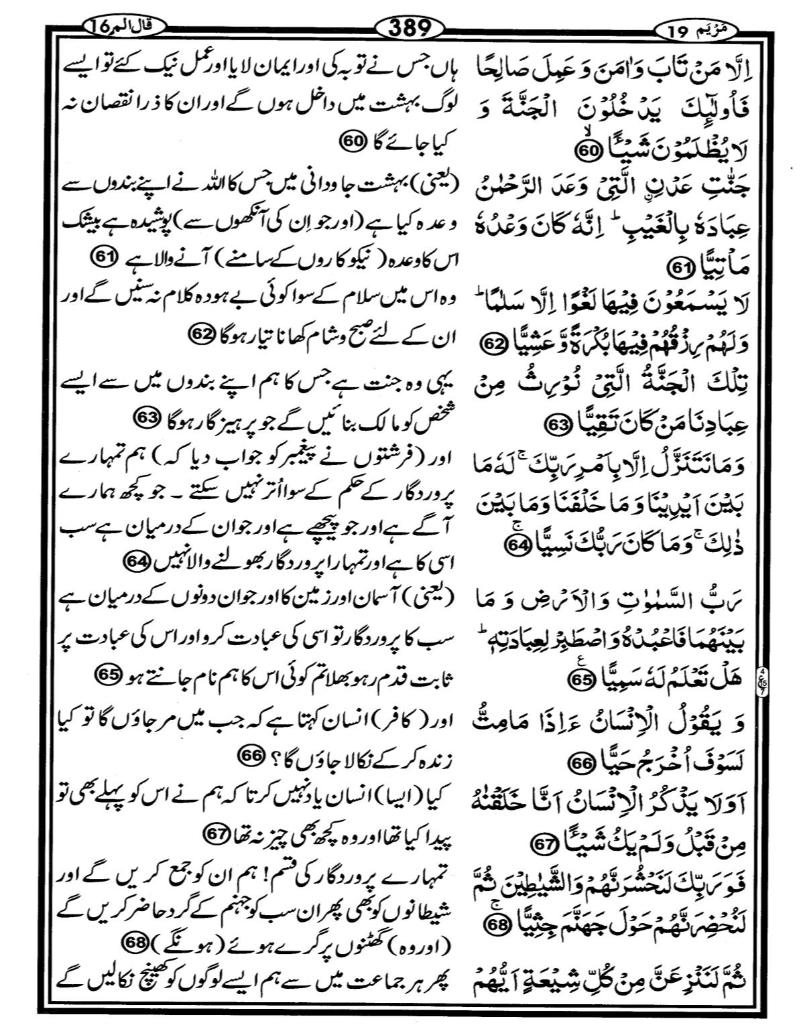 مَرْيَم 19
389
قال الم 16
اِلَّا مَنْ تَابَ وَاٰمَنَ وَعَمِلَ صَالِحًا
فَاُولٰٓئِكَ يَدْخُلُوْنَ الْجَنَّةَ وَ
لَا يُظْلَمُوْنَ شَيْـًٔا ۙ 60
جَنّٰتِ عَدْنِ ِۨالَّتِيْ وَعَدَ الرَّحْمٰنُ
عِبَادَهٗ بِالْغَيْبِ ؕ اِنَّهٗ كَانَ وَعْدُهٗ
مَاْتِيًّا 61
لَا يَسْمَعُوْنَ فِيْهَا لَغْوًا اِلَّا سَلٰمًا ؕ
وَلَهُمْ رِزْقُهُمْ فِيْهَا بُكْرَةً وَّعَشِيًّا 62
تِلْكَ الْجَنَّةُ الَّتِيْ نُوْرِثُ مِنْ
عِبَادِنَا مَنْ كَانَ تَقِيًّا 63
وَمَا نَتَنَزَّلُ اِلَّا بِاَمْرِ رَبِّكَ ۚ لَهٗ مَا
بَيْنَ اَيْدِيْنَا وَمَا خَلْفَنَا وَمَا بَيْنَ
ذٰلِكَ ۚ وَمَا كَانَ رَبُّكَ نَسِيًّا ۚ 64
رَبُّ السَّمٰوٰتِ وَالْاَرْضِ وَمَا
بَيْنَهُمَا فَاعْبُدْهُ وَاصْطَبِرْ لِعِبَادَتِهٖ ؕ
هَلْ تَعْلَمُ لَهٗ سَمِيًّا ۧ 65
وَيَقُوْلُ الْاِنْسَانُ ءَاِذَا مَا مِتُّ
لَسَوْفَ اُخْرَجُ حَيًّا 66
اَوَلَا يَذْكُرُ الْاِنْسَانُ اَنَّا خَلَقْنٰهُ
مِنْ قَبْلُ وَلَمْ يَكُ شَيْـًٔا 67
فَوَرَبِّكَ لَنَحْشُرَنَّهُمْ وَالشَّيٰطِيْنَ ثُمَّ
لَنُحْضِرَنَّهُمْ حَوْلَ جَهَنَّمَ جِثِيًّا ۚ 68
ثُمَّ لَنَنْزِعَنَّ مِنْ كُلِّ شِيْعَةٍ اَيُّهُمْ
ہاں جس نے توبہ کی اور ایمان لایا اور عمل نیک کئے تو ایسے
لوگ بہشت میں داخل ہوں گے اور ان کا ذرا نقصان نہ
کیا جائے گا 60
(یعنی) بہشت جاودانی میں جس کا اللہ نے اپنے بندوں سے
وعدہ کیا ہے (اور جو ان کی آنکھوں سے) پوشیدہ ہے بیشک
اس کا وعدہ (نیکو کاروں کے سامنے) آنے والا ہے 61
وہ اس میں سلام کے سوا کوئی بے ہودہ کلام نہ سنیں گے اور
ان کے لئے صبح و شام کھانا تیار ہوگا 62
یہی وہ جنت ہے جس کا ہم اپنے بندوں میں سے ایسے
شخص کو مالک بنائیں گے جو پرہیز گار ہوگا 63
اور (فرشتوں نے پیغمبر کو جواب دیا کہ) ہم تمہارے
پروردگار کے حکم کے سوا اُتر نہیں سکتے ۔ جو کچھ ہمارے
آگے ہے اور جو پیچھے ہے اور جو ان کے درمیان ہے سب
اسی کا ہے اور تمہارا پروردگار بھولنے والا نہیں 64
(یعنی) آسمان اور زمین کا اور جو ان دونوں کے درمیان ہے
سب کا پروردگار تو اسی کی عبادت کرو اور اس کی عبادت پر
ثابت قدم رہو بھلا تم کوئی اس کا ہم نام جانتے ہو 65
اور (کافر) انسان کہتا ہے کہ جب میں مر جاؤں گا تو کیا
زندہ کر کے نکالا جاؤں گا؟ 66
کیا (ایسا) انسان یاد نہیں کرتا کہ ہم نے اس کو پہلے بھی تو
پیدا کیا تھا اور وہ کچھ بھی چیز نہ تھا 67
تمہارے پروردگار کی قسم! ہم ان کو جمع کریں گے اور
شیطانوں کو بھی پھر ان سب کو جہنم کے گرد حاضر کریں گے
(اور وہ) گھٹنوں پر گرے ہوئے (ہونگے) 68
پھر ہر جماعت میں سے ہم ایسے لوگوں کو کھینچ نکالیں گے